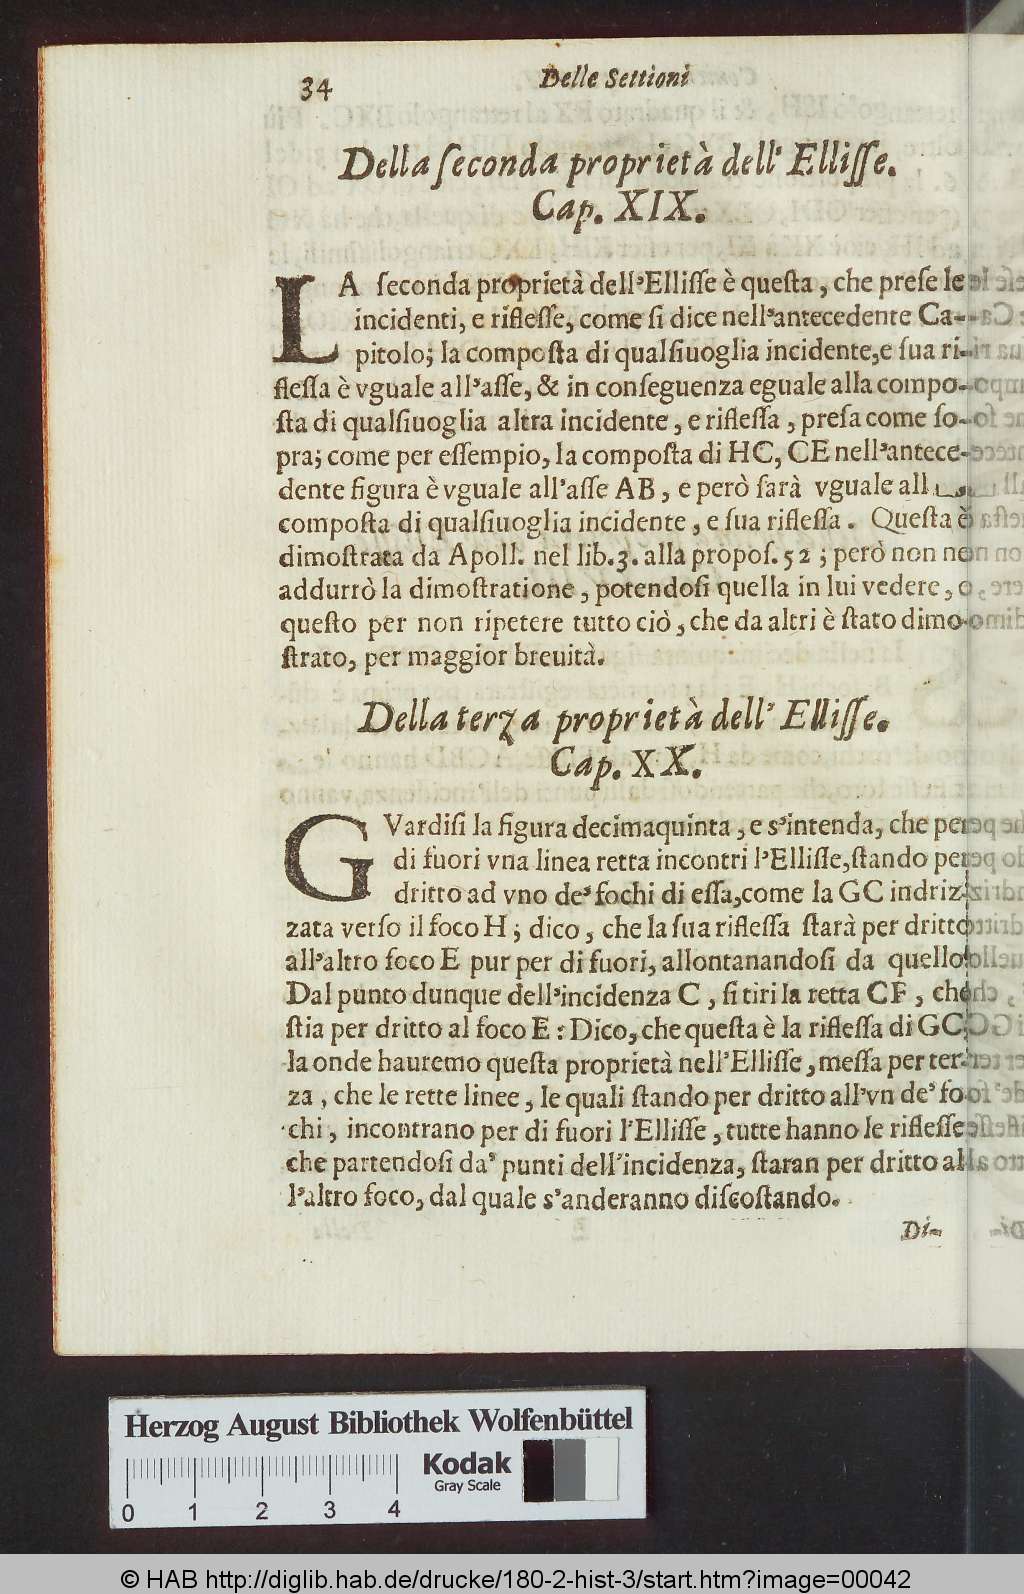 34
Delle Settioni
Della ſeconda proprietà dell' Elliſſe.
Cap. XIX.
LA ſeconda proprietà dell'Elliſſe è queſta, che preſe le
incidenti, e rifleſſe, come ſi dice nell'antecedente Ca-
pitolo; la compoſta di qualſiuoglia incidente, e ſua ri-
fleſſa è vguale all'aſſe, & in conſeguenza eguale alla compo-
ſta di qualſiuoglia altra incidente, e rifleſſa, preſa come ſo-
pra; come per eſſempio, la compoſta di HC, CE nell'antece-
dente figura è vguale all'aſſe AB, e però ſarà vguale all
compoſta di qualſiuoglia incidente, e ſua rifleſſa. Queſta è
dimoſtrata da Apoll. nel lib. 3. alla propoſ. 52; però non ne
addurrò la dimoſtratione, potendoſi quella in lui vedere, o
queſto per non ripetere tutto ciò, che da altri è ſtato dimo-
ſtrato, per maggior breuità.
Della terza proprietà dell' Elliſſe.
Cap. XX.
GVardiſi la figura decimaquinta, e s'intenda, che per
di fuori vna linea retta incontri l'Elliſſe, ſtando per
dritto ad vno de' fochi di eſſa, come la GC indriz-
zata verſo il foco H; dico, che la ſua rifleſſa ſtarà per dritto
all'altro foco E pur per di fuori, allontanandoſi da quello.
Dal punto dunque dell'incidenza C, ſi tiri la retta CF, che
ſtia per dritto al foco E: Dico, che queſta è la rifleſſa di GC,
la onde hauremo queſta proprietà nell'Elliſſe, meſſa per ter-
za, che le rette linee, le quali ſtando per dritto all'vn de' fo-
chi, incontrano per di fuori l'Elliſſe, tutte hanno le rifleſſe
che partendoſi da' punti dell'incidenza, ſtaran per dritto al-
l'altro foco, dal quale s'anderanno diſcoſtando.
Di-
Herzog August Bibliothek Wolfenbüttel
Kodak
Gray Scale
0 1 2 3 4
© HAB http://diglib.hab.de/drucke/180-2-hist-3/start.htm?image=00042